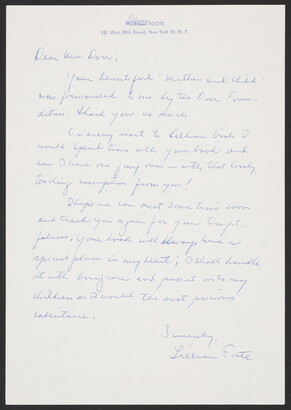 FOOTE
West 89th Street, New York 24, N. Y.
Dear Mrs. Dorr,
Your beautiful "Mother and Child"
was forwarded to me by the Dorr Foun-
dation. Thank you so much.
On every visit to Lillian Gish I
would spend time with your book and
now I have one of my own — with that lovely,
touching inscription from you!
I hope we can meet some time soon
and thank you again for your thought-
fulness. Your book will always have a
special place in my heart; I shall handle
it with loving care and pass it on to my
children as I would the most precious
inheritance.
Sincerely,
Lillian Foote